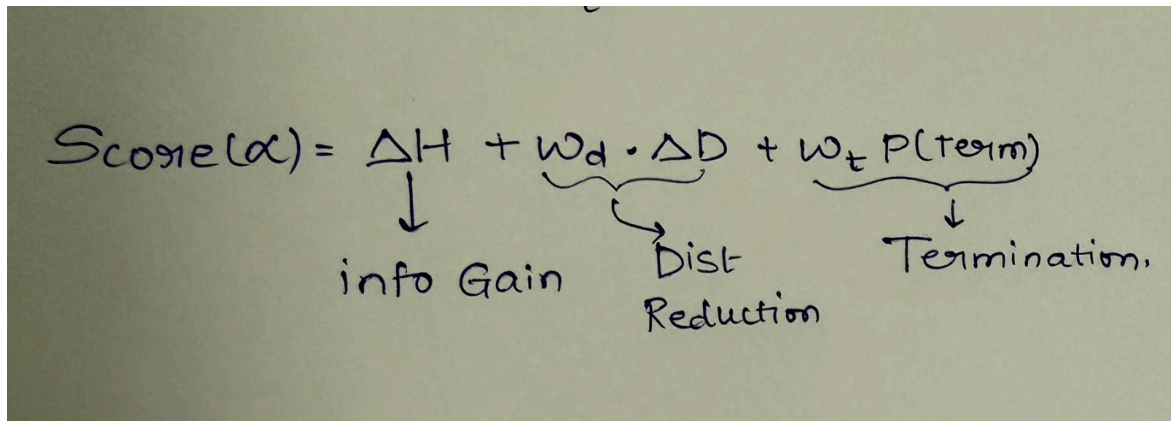 Score(α) = ΔH + Wd · ΔD + Wt P(term)
info Gain
Dist
Reduction
Termination.